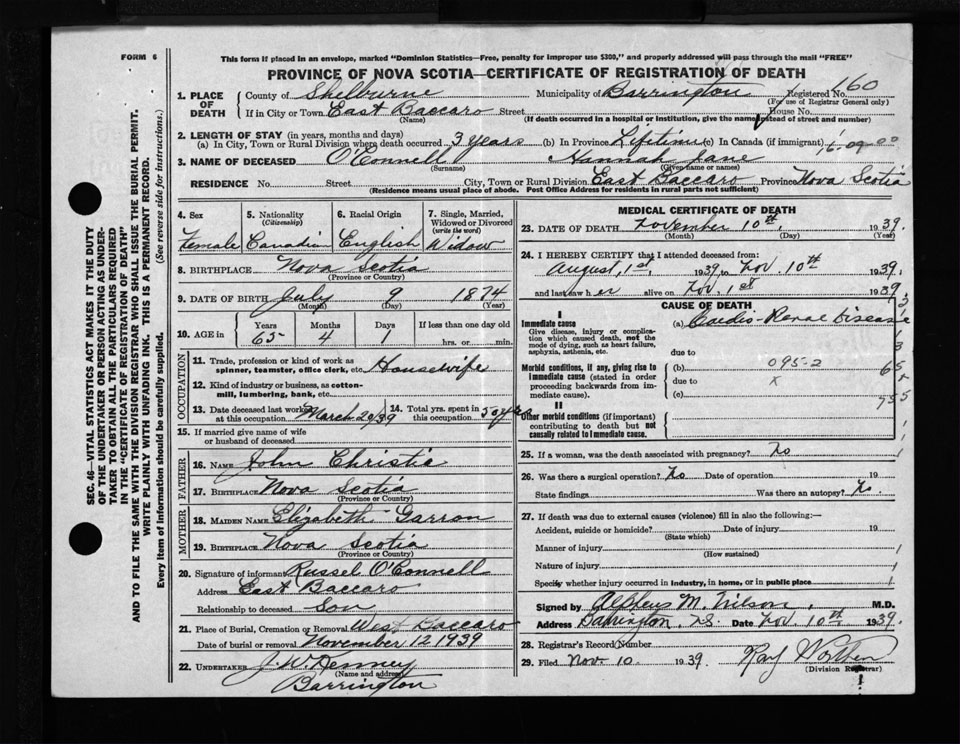 FORM 6
This form if placed in an envelope, marked "Dominion Statistics—Free, penalty for improper use $300," and properly addressed will pass through the mail "FREE"
PROVINCE OF NOVA SCOTIA—CERTIFICATE OF REGISTRATION OF DEATH
1. PLACE OF DEATH County of Shelburne Municipality of Barrington Registered No. 160
(For use of Registrar General only)
If in City or Town East Baccaro Street House No.
(Name) (If death occurred in a hospital or institution, give the name instead of street and number)
2. LENGTH OF STAY (in years, months and days)
(a) In City, Town or Rural Division where death occurred 3 Years (b) In Province Lifetime (c) In Canada (if immigrant) 16-09-00
3. NAME OF DECEASED O'Connell Hannah Jane
(Surname) (Given name or names)
RESIDENCE No. Street City, Town or Rural Division East Baccaro Province Nova Scotia
(Residence means usual place of abode. Post Office Address for residents in rural parts not sufficient)
4. Sex
Female
5. Nationality
(Citizenship)
Canadian
6. Racial Origin
English
7. Single, Married, Widowed or Divorced
(write the word)
Widow
8. BIRTHPLACE Nova Scotia
(Province or Country)
9. DATE OF BIRTH July 9 1874
(Month) (Day) (Year)
10. AGE in Years Months Days If less than one day old
65 4 1 hrs. or min.
OCCUPATION
11. Trade, profession or kind of work as spinner, teamster, office clerk, etc. Housewife
12. Kind of industry or business, as cotton-mill, lumbering, bank, etc.
13. Date deceased last worked at this occupation March 20/39
14. Total yrs. spent in this occupation 50 yrs
15. If married give name of wife or husband of deceased
FATHER
16. NAME John Christie
17. BIRTHPLACE Nova Scotia
(Province or Country)
MOTHER
18. MAIDEN NAME Elizabeth Garron
19. BIRTHPLACE Nova Scotia
(Province or Country)
20. Signature of informant Russel O'Connell
Address East Baccaro
Relationship to deceased Son
21. Place of Burial, Cremation or Removal West Baccaro
Date of burial or removal November 12 1939
22. UNDERTAKER J. W. Denney
(Name and address)
Barrington
MEDICAL CERTIFICATE OF DEATH
23. DATE OF DEATH November 10th, 1939.
(Month) (Day) (Year)
24. I HEREBY CERTIFY that I attended deceased from:
August, 1st, 1939 to Nov. 10th 1939,
and last saw her alive on Nov. 1st 1939
CAUSE OF DEATH
I
Immediate cause
Give disease, injury or complication which caused death, not the mode of dying, such as heart failure, asphyxia, asthenia, etc.
(a) Cardio-Renal Disease
due to
Morbid conditions, if any, giving rise to immediate cause (stated in order proceeding backwards from immediate cause).
(b) 095-2
due to x
(c)
II
Other morbid conditions (if important) contributing to death but not causally related to immediate cause.
25. If a woman, was the death associated with pregnancy? No
26. Was there a surgical operation? No Date of operation 19
State findings Was there an autopsy? No.
27. If death was due to external causes (violence) fill in also the following:—
Accident, suicide or homicide? Date of injury 19
(State which)
Manner of injury
(How sustained)
Nature of injury
Specify whether injury occurred in industry, in home, or in public place
Signed by Alpheus M. Wilson, M.D.
Address Barrington, N.S. Date Nov. 10th 1939.
28. Registrar's Record Number
29. Filed Nov. 10 1939
(Division Registrar)
SEC. 46—VITAL STATISTICS ACT MAKES IT THE DUTY
OF THE UNDERTAKER OR PERSON ACTING AS UNDER-
TAKER TO OBTAIN ALL THE PARTICULARS REQUIRED
IN THE "CERTIFICATE OF REGISTRATION OF DEATH"
AND TO FILE THE SAME WITH THE DIVISION REGISTRAR WHO SHALL ISSUE THE BURIAL PERMIT.
WRITE PLAINLY WITH UNFADING INK. THIS IS A PERMANENT RECORD.
Every item of information should be carefully supplied. (See reverse side for instructions.)